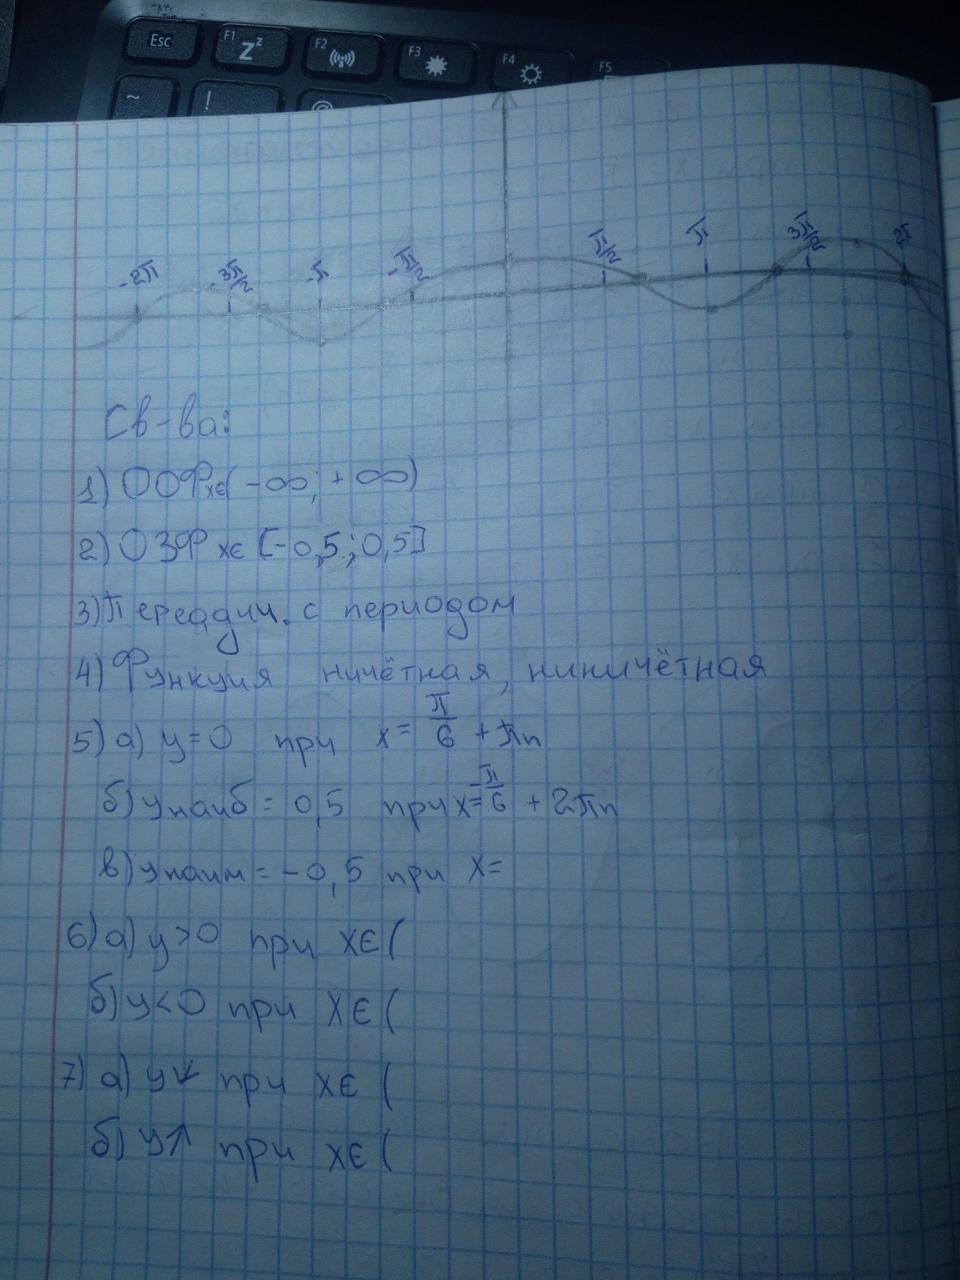 Esc F1 Zz F2 F3 F4 F5
~ ! @
-2π -3π/2 -π -π/2 π/2 π 3π/2 2π
Св-ва:
1) ООФ x∈(-∞; +∞)
2) ОЗФ x∈ [-0,5; 0,5]
3) Переодич. с периодом
4) Функция ничётная, ниничётная
5) а) y=0 при x= π/6 + πn
б) yнаиб = 0,5 при x= -π/6 + 2πn
в) yнаим = -0,5 при x=
6) а) y>0 при x∈(
б) y<0 при x∈(
7) а) y↓ при x∈(
б) y↑ при x∈(